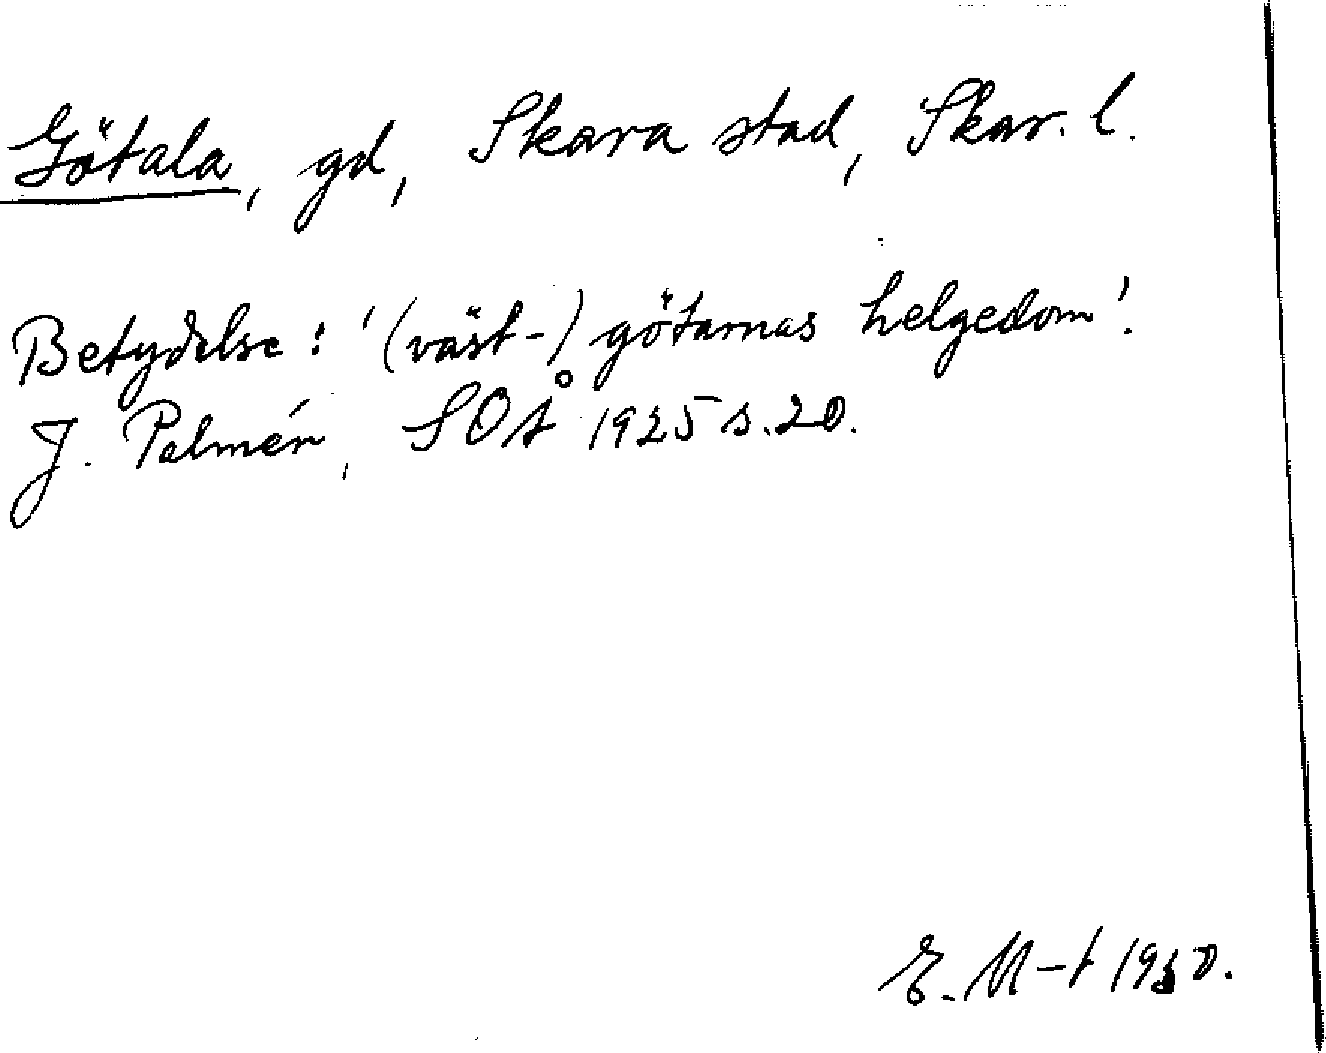 Götala, gd, Skara stad, Skar. l.
Betydelse: '(väst-)götarnas helgedom'.
J. Palmér, SOÅ 1925 s. 20.
E. M-t 1930.